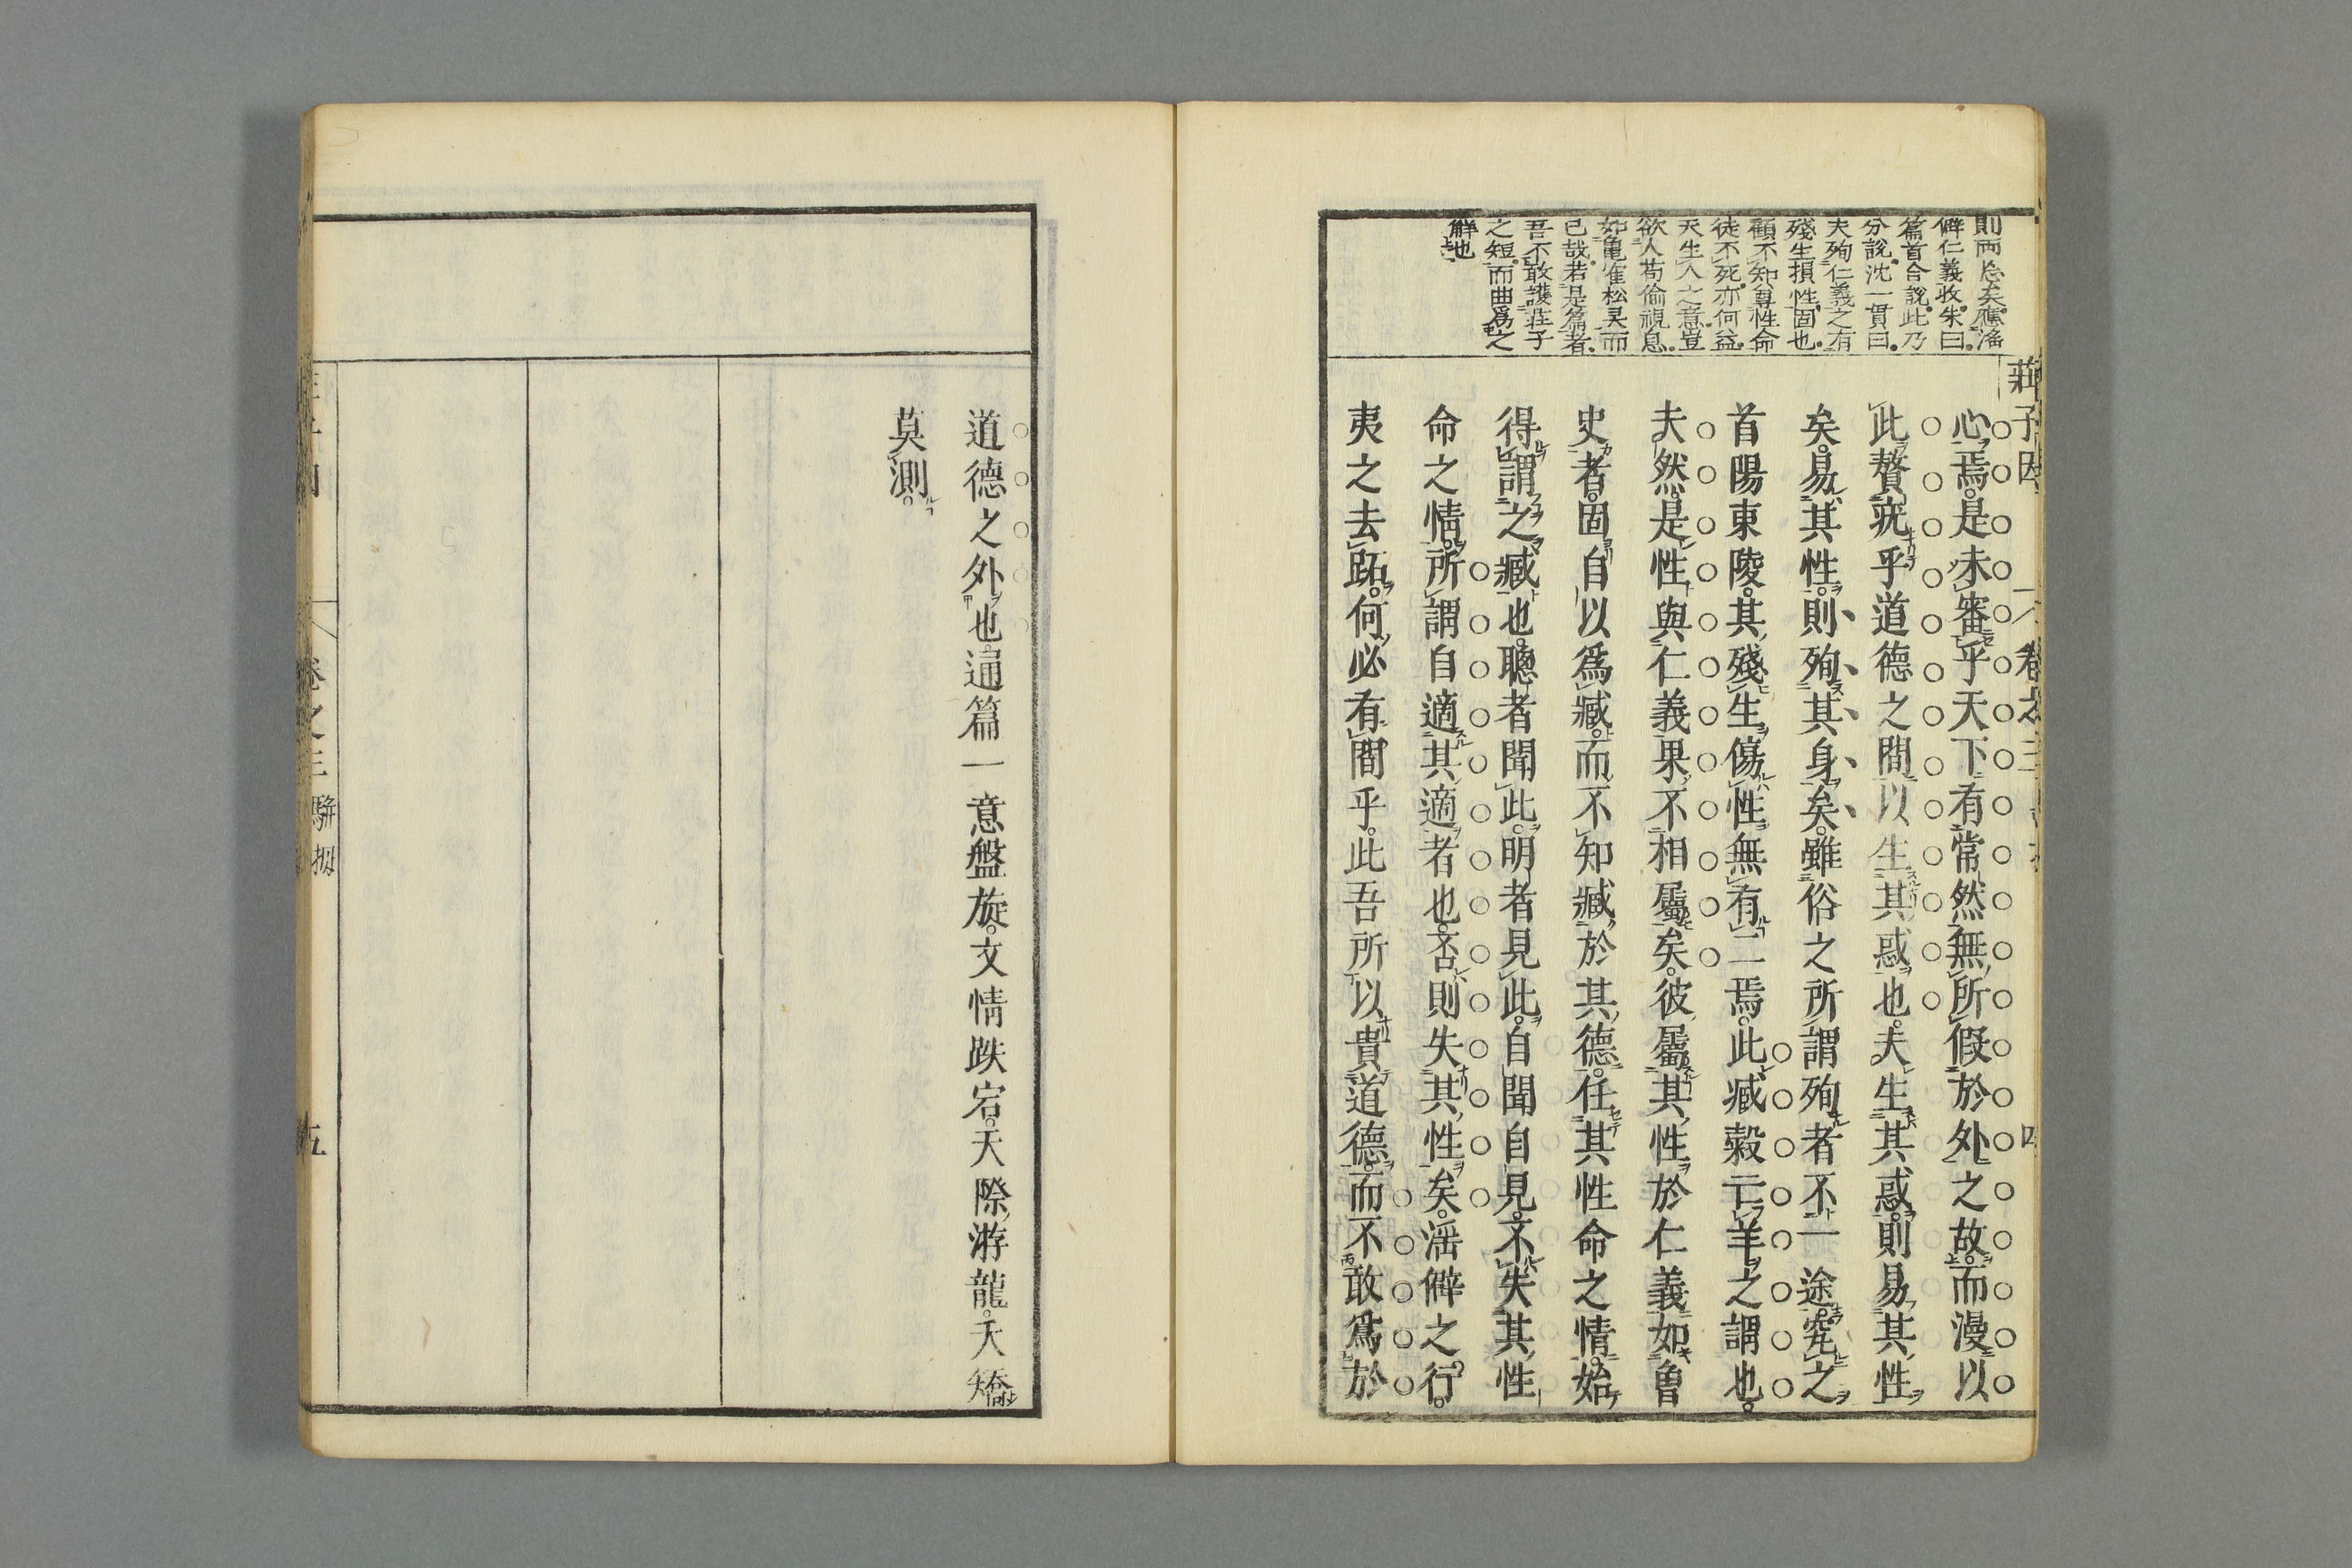 則兩忘矣應滛
僻仁義收朱曰
篇首合說此乃
分說沈一貫曰
夫殉仁義之有
殘生損性固也
顧不知尊性命
徒不死亦何益
天生人之意豈
欲人苟偷視息
如亀隺松昊而
已哉若是篇者
吾不敢護莊子
之短而曲爲之
解也
莊子因 卷之三 四
心焉是未審乎天下有常然無所假於外之故而漫以
此贅疣乎道德之間以生其惑也夫生其惑則易其性
矣易其性則殉其身矣雖俗之所謂殉者不一途究之
首陽東陵其殘生傷性無有二焉此臧穀亡羊之謂也
夫然是性與仁義果不相屬矣彼屬其性於仁義如曽
史者固自以爲臧而不知臧於其德任其性命之情始
得謂之臧也聰者聞此明者見此自聞自見不失其性
命之情所謂自適其適者也否則失其性矣滛僻之行
夷之去跖何必有間乎此吾所以貴道德而不敢爲於
道德之外也通篇一意盤旋文情跌宕天際游龍夭矯
莫測
卷之三 駢拇 五